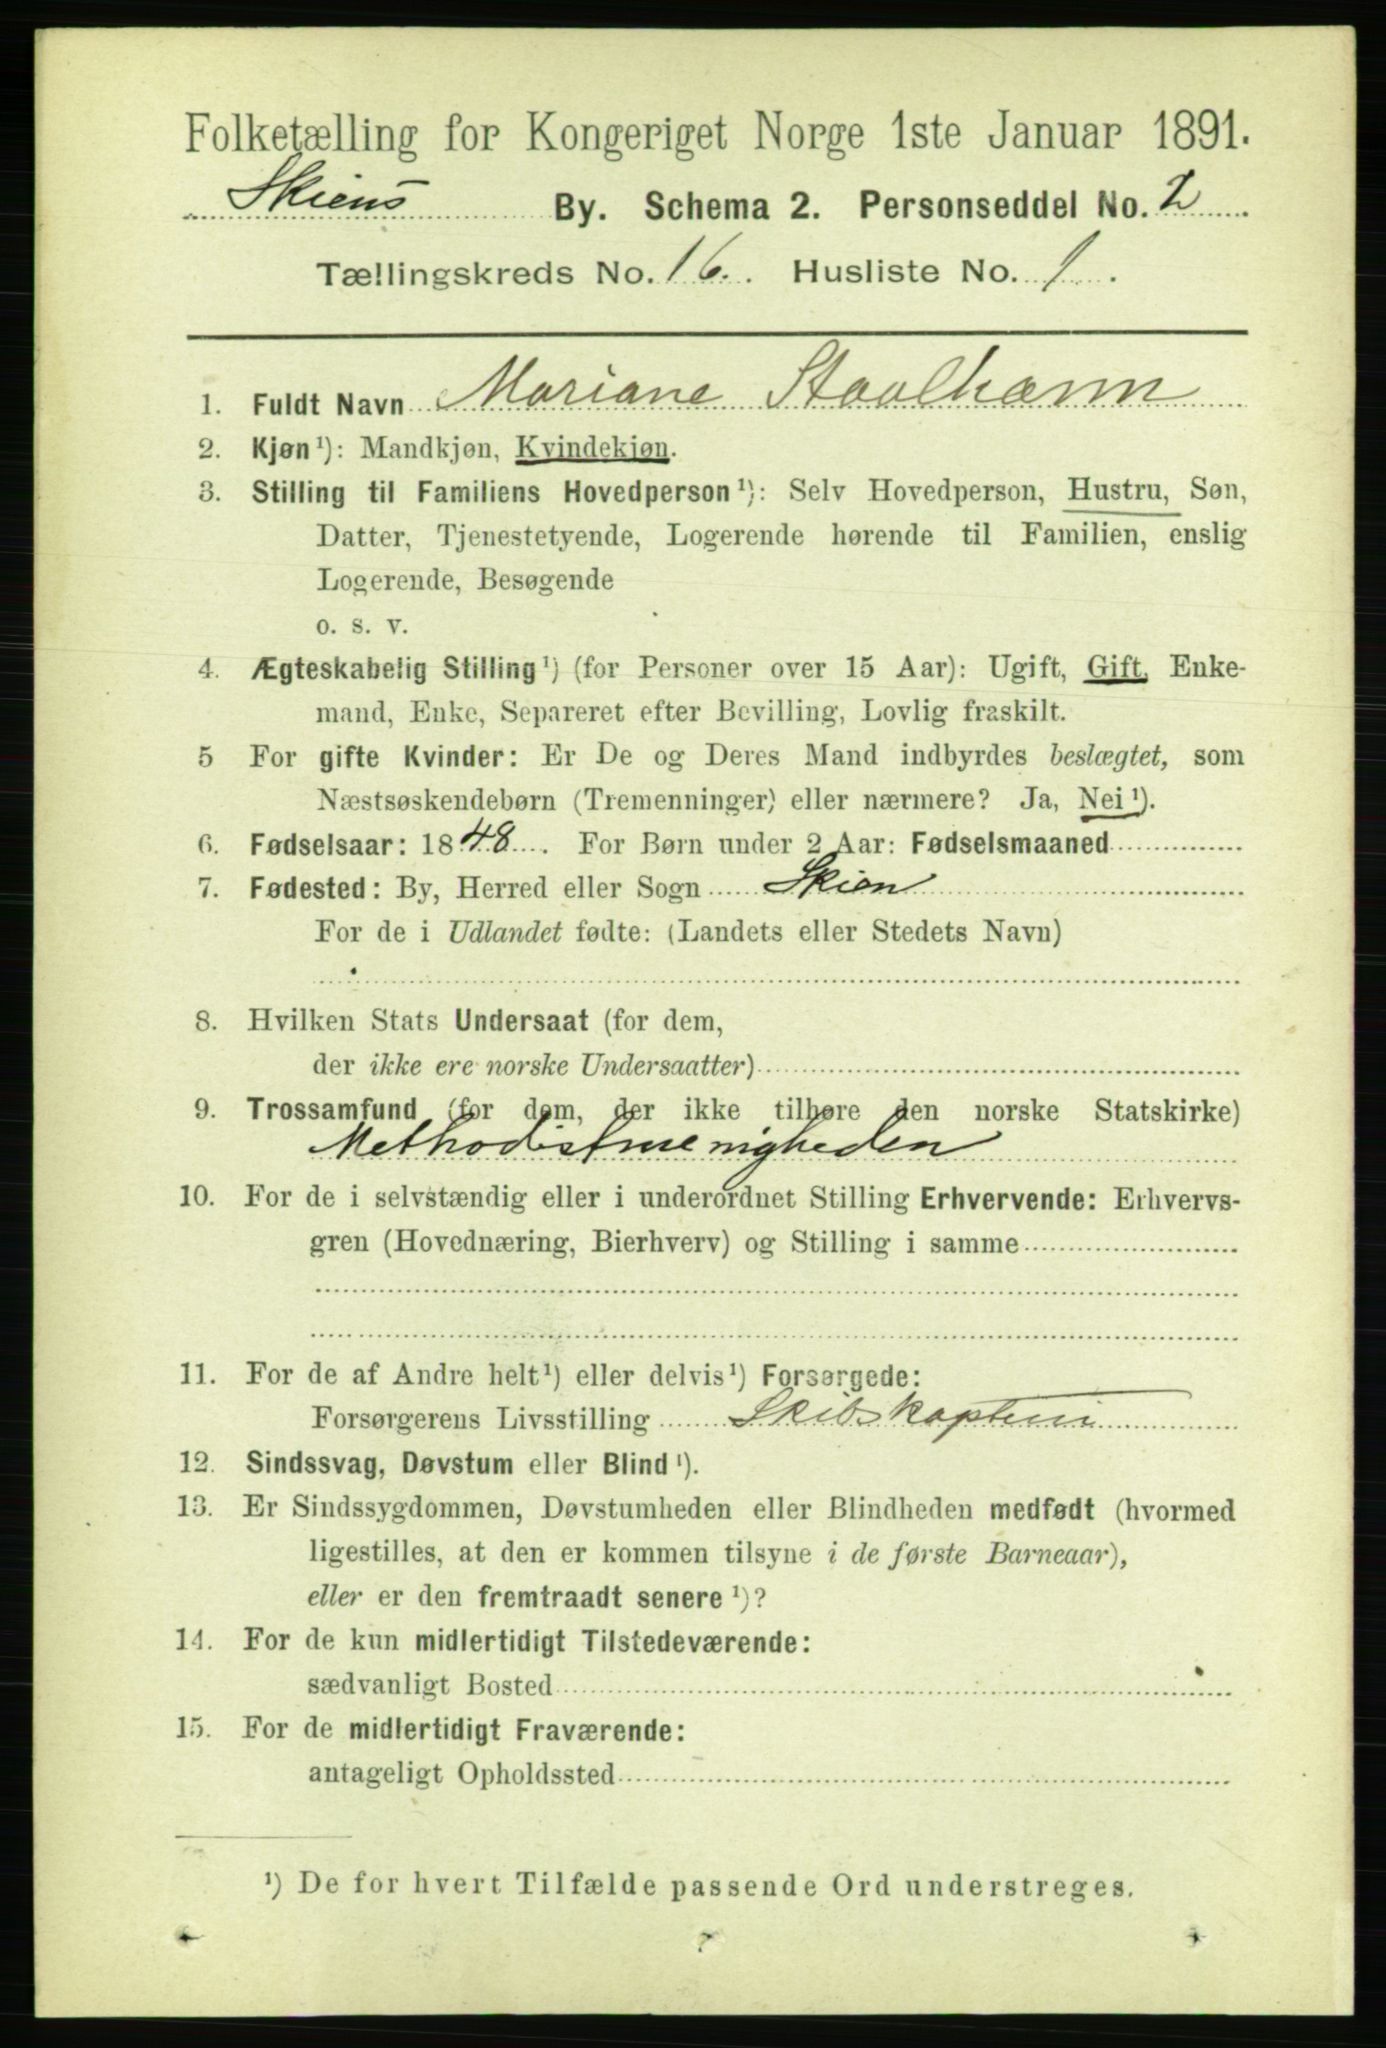 Folketælling for Kongeriget Norge 1ste Januar 1891.
Skiens By. Schema 2. Personseddel No. 2
Tællingskreds No. 16. Husliste No. 1.
1. Fuldt Navn Mariane Staalhamn
2. Kjøn ¹): Mandkjøn, Kvindekjøn.
3. Stilling til Familiens Hovedperson ¹): Selv Hovedperson, Hustru, Søn,
Datter, Tjenestetyende, Logerende hørende til Familien, enslig
Logerende, Besøgende
o. s. v.
4. Ægteskabelig Stilling ¹) (for Personer over 15 Aar): Ugift, Gift, Enke-
mand, Enke, Separeret efter Bevilling, Lovlig fraskilt.
5 For gifte Kvinder: Er De og Deres Mand indbyrdes beslægtet, som
Næstsøskendebørn (Tremenninger) eller nærmere? Ja, Nei ¹).
6. Fødselsaar: 1848. For Børn under 2 Aar: Fødselsmaaned
7. Fødested: By, Herred eller Sogn Skien
For de i Udlandet fødte: (Landets eller Stedets Navn)
8. Hvilken Stats Undersaat (for dem,
der ikke ere norske Undersaatter)
9. Trossamfund (for dem, der ikke tilhøre den norske Statskirke)
Methodistmenigheden
10. For de i selvstændig eller i underordnet Stilling Erhvervende: Erhvervs-
gren (Hovednæring, Bierhverv) og Stilling i samme
11. For de af Andre helt ¹) eller delvis ¹) Forsørgede:
Forsørgerens Livsstilling Skibskaptein
12. Sindssvag, Døvstum eller Blind ¹).
13. Er Sindssygdommen, Døvstumheden eller Blindheden medfødt (hvormed
ligestilles, at den er kommen tilsyne i de første Barneaar),
eller er den fremtraadt senere ¹)?
14. For de kun midlertidigt Tilstedeværende:
sædvanligt Bosted
15. For de midlertidigt Fraværende:
antageligt Opholdssted
¹) De for hvert Tilfælde passende Ord understreges.